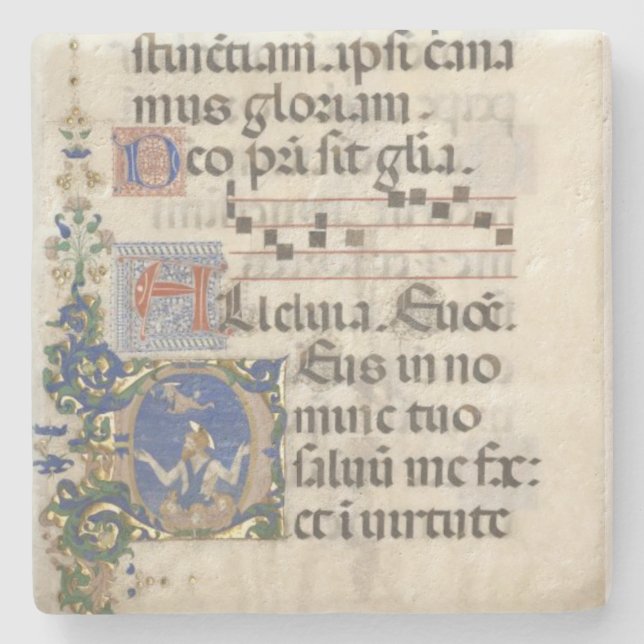 stinētiam. ipsi cana
mus gloriam.
Deo pr̄i sit gl̄ia.
ALleluia. Euoē.
DEus in no
mine tuo
saluū me fac:
et ī uirtute